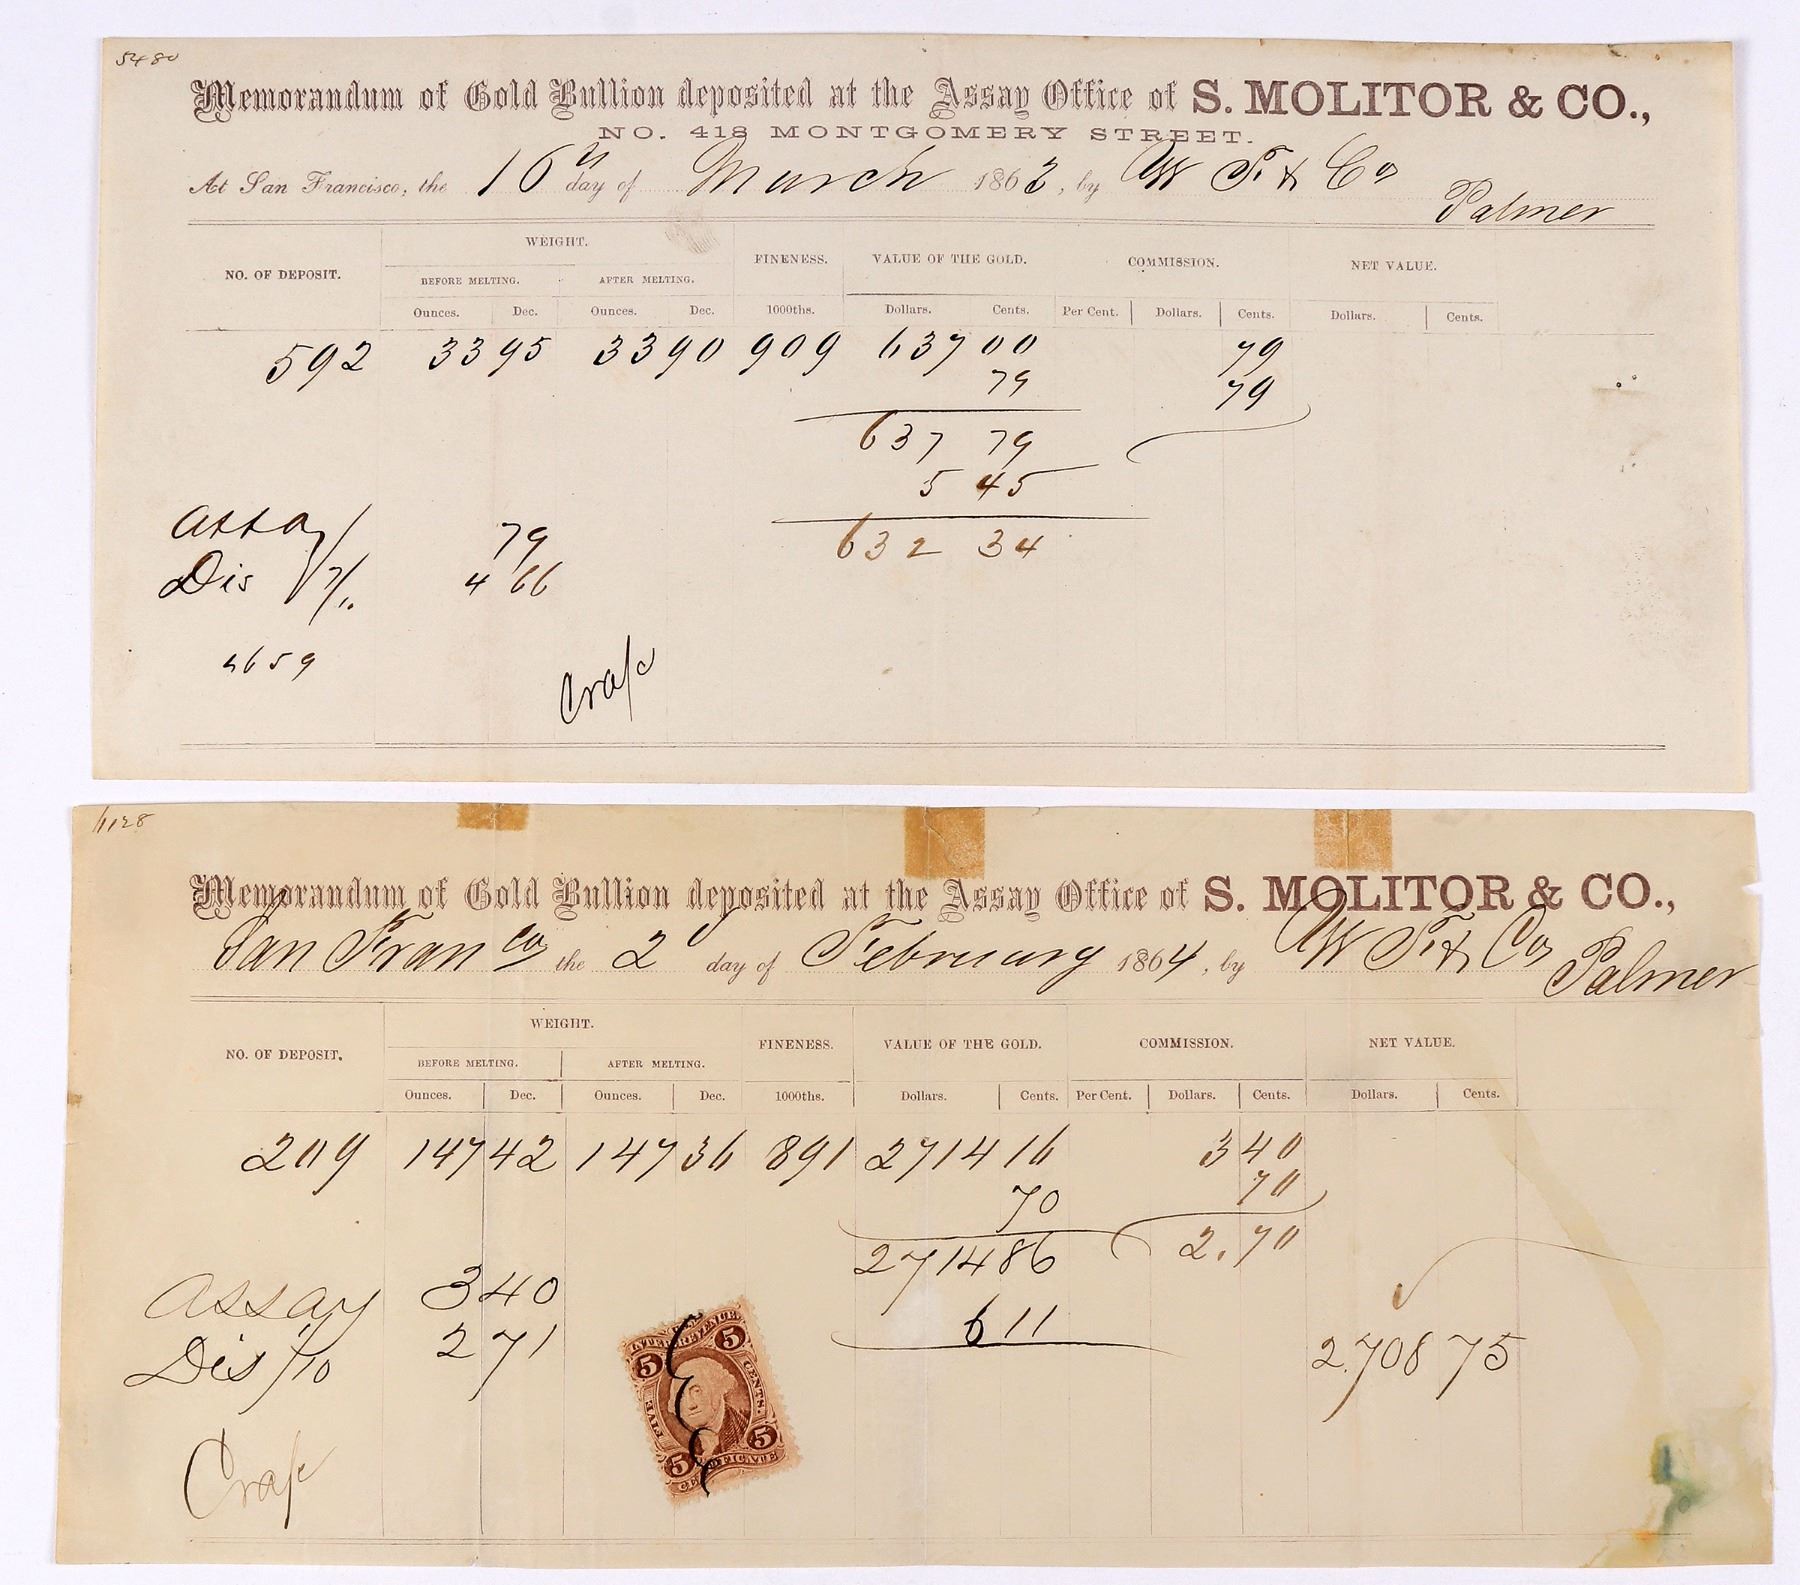 5480
Memorandum of Gold Bullion deposited at the Assay Office of S. MOLITOR & CO.,
NO. 418 MONTGOMERY STREET.
At San Francisco, the 16th day of March 1863, by W F & Co
Palmer
WEIGHT.
NO. OF DEPOSIT. FINENESS. VALUE OF THE GOLD. COMMISSION. NET VALUE.
BEFORE MELTING. AFTER MELTING.
Ounces. Dec. Ounces. Dec. 1000ths. Dollars. Cents. Per Cent. Dollars. Cents. Dollars. Cents.
592 33 95 33 90 909 637 00 79
79 79
637 79
5 45
Assay 79 632 34
Dis 4 66
4659
Cr a/c
Memorandum of Gold Bullion deposited at the Assay Office of S. MOLITOR & CO.,
San Franco the 2d day of February 1864, by W F & Co
Palmer
WEIGHT.
NO. OF DEPOSIT. FINENESS. VALUE OF THE GOLD. COMMISSION. NET VALUE.
BEFORE MELTING. AFTER MELTING.
Ounces. Dec. Ounces. Dec. 1000ths. Dollars. Cents. Per Cent. Dollars. Cents. Dollars. Cents.
209 147 42 147 36 891 2714 16 3 40
70 70
2714 86 2.70
Assay 3 40
6 11
Dis 1/10 2 71 2.708 75
INTER. REVENUE
5 5
FIVE CENTS.
5 5
CERTIFICATE
Cr a/c